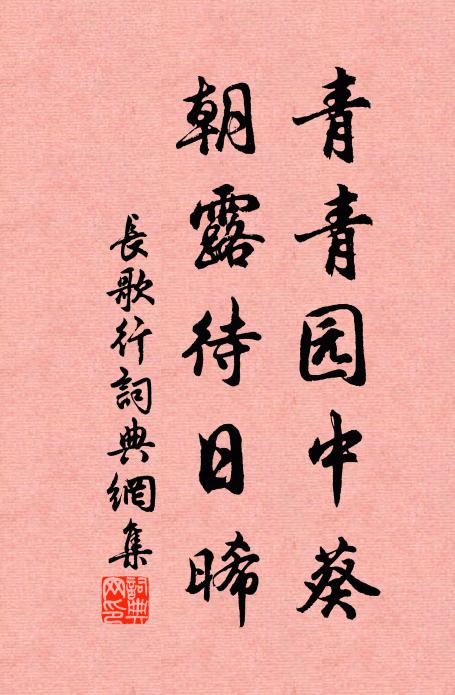 青青园中葵
朝露待日晞
長歌行詞典網集
詞典网印